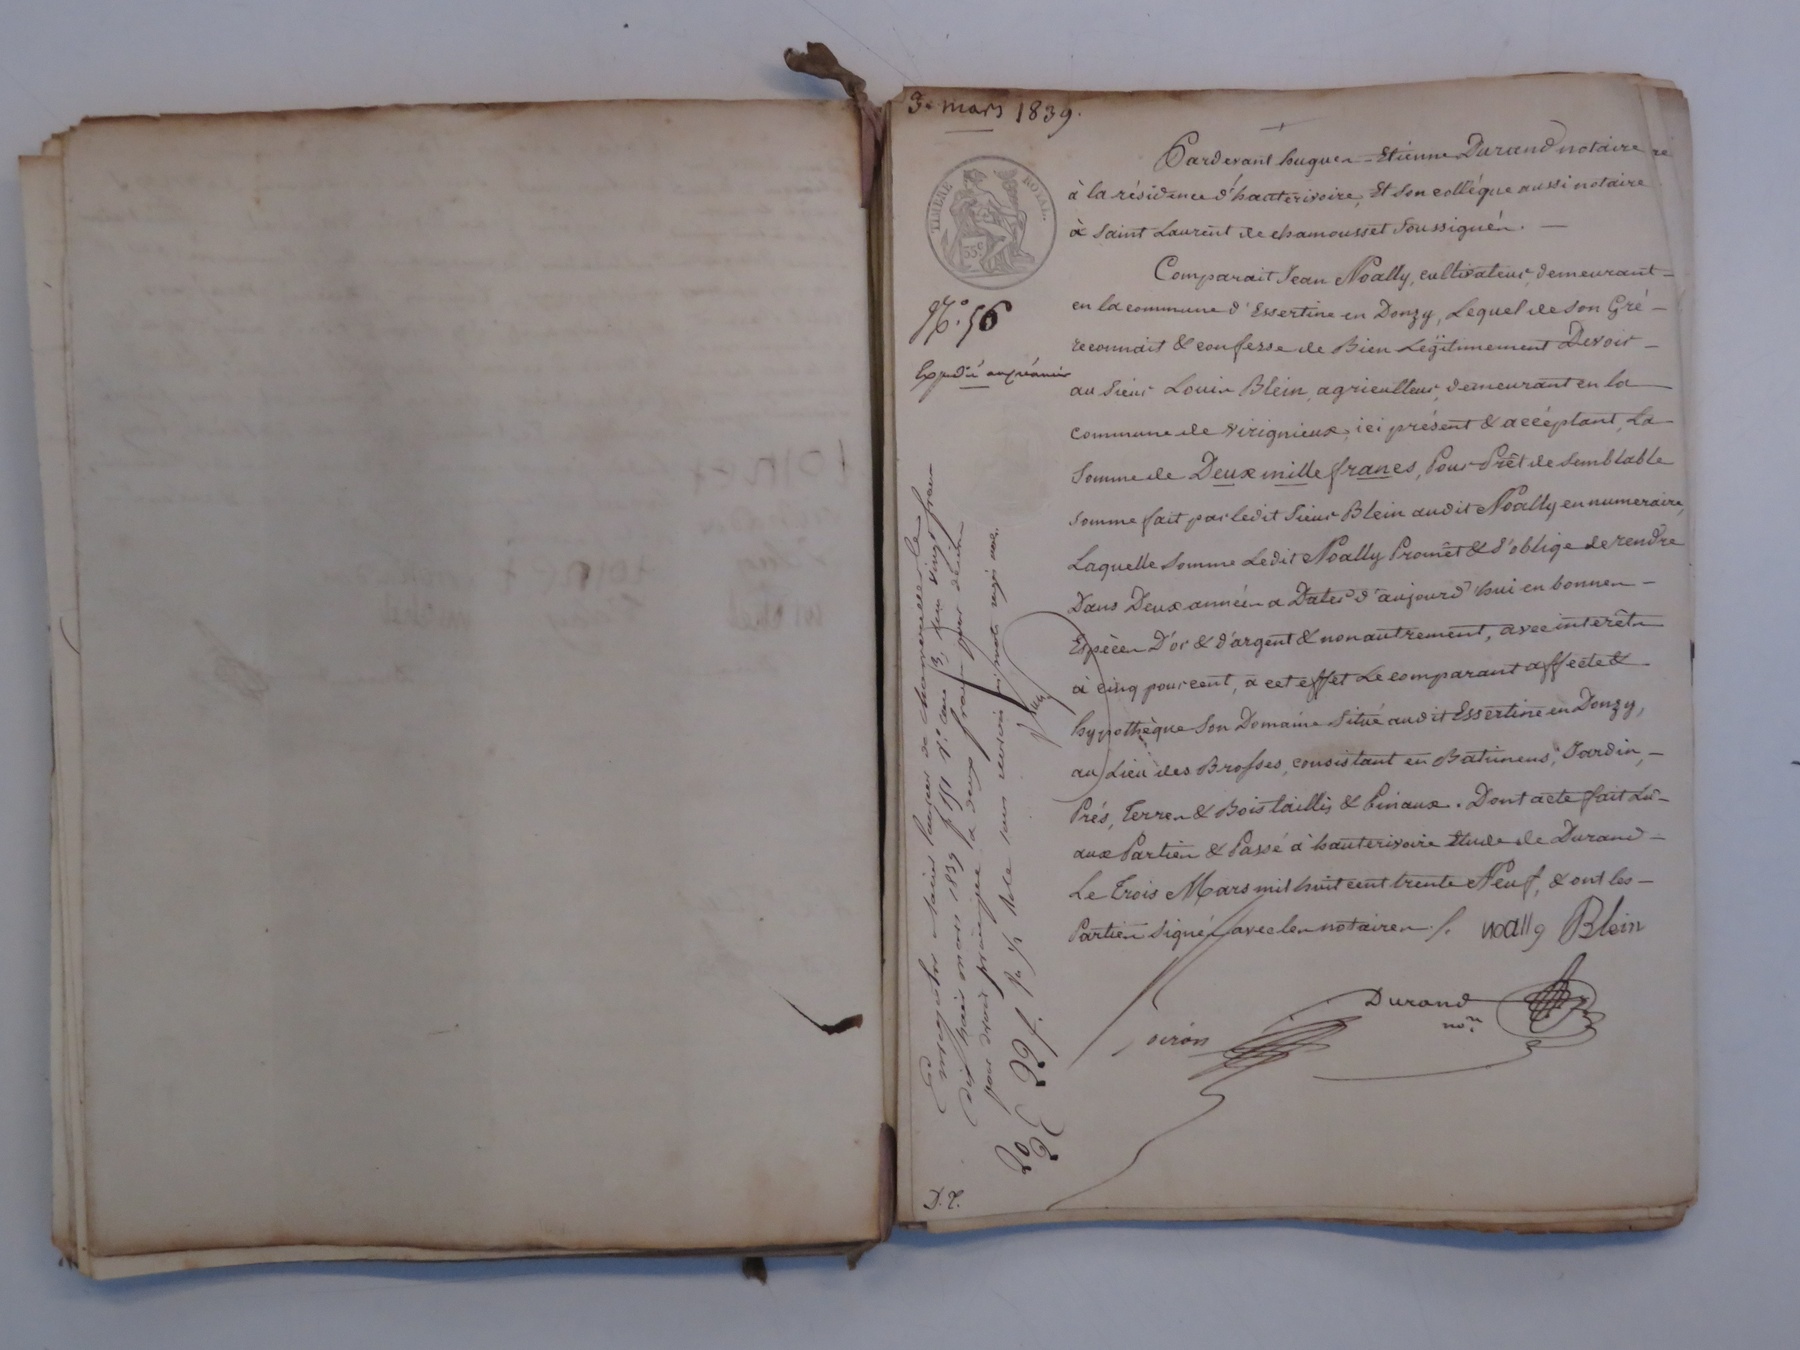 3e mars 1839.
TIMBRE ROYAL.
35 c
No. 56
Expédié au créancier
Pardevant hugues-Etienne Durand notaire
à la résidence d'hauterivoire, Et son collégue aussi notaire
à Saint Laurent de chamousset soussignés. —
Comparait Jean Noally, cultivateur, demeurant —
en la commune d'Essertine en Donzy, Lequel de son Gré —
reconnait & confesse de Bien Légitimement Devoir —
au Sieur Louis Blein, agriculteur, demeurant en la
commune de virignieux, ici présent & accéptant, La
somme de Deux mille francs, Pour Prêt de semblable
somme fait par ledit Sieur Blein audit Noally en numeraire,
Laquelle somme Ledit Noally Promêt & s'oblige de rendre
Dans Deux années a Dater d'aujourd'hui en bonnes —
Espèces D'or & d'argent & non autrement, avec interêts
à cinq pour cent, à cet effet Le comparant affecte &
hypothèque son Domaine situé audit Essertine en Donzy,
au Lieu des Brosses, consistant en Batimens, Jardin, —
Prés, Terres & Bois taillis & Pinaux. Dont acte fait Lu —
aux Parties & Passé à hauterivoire Etude de Durand —
Le Trois Mars mil huit cent trente Neuf, & ont les —
Parties signé avec les notaires /.
noally Blein
Durand
nore
Enregistré à Saint Laurent de Chamousset le
mars 1839 fo 151 Ro Case 3, reçu vingt francs
pour droit principal & deux francs pour décime
D.T.